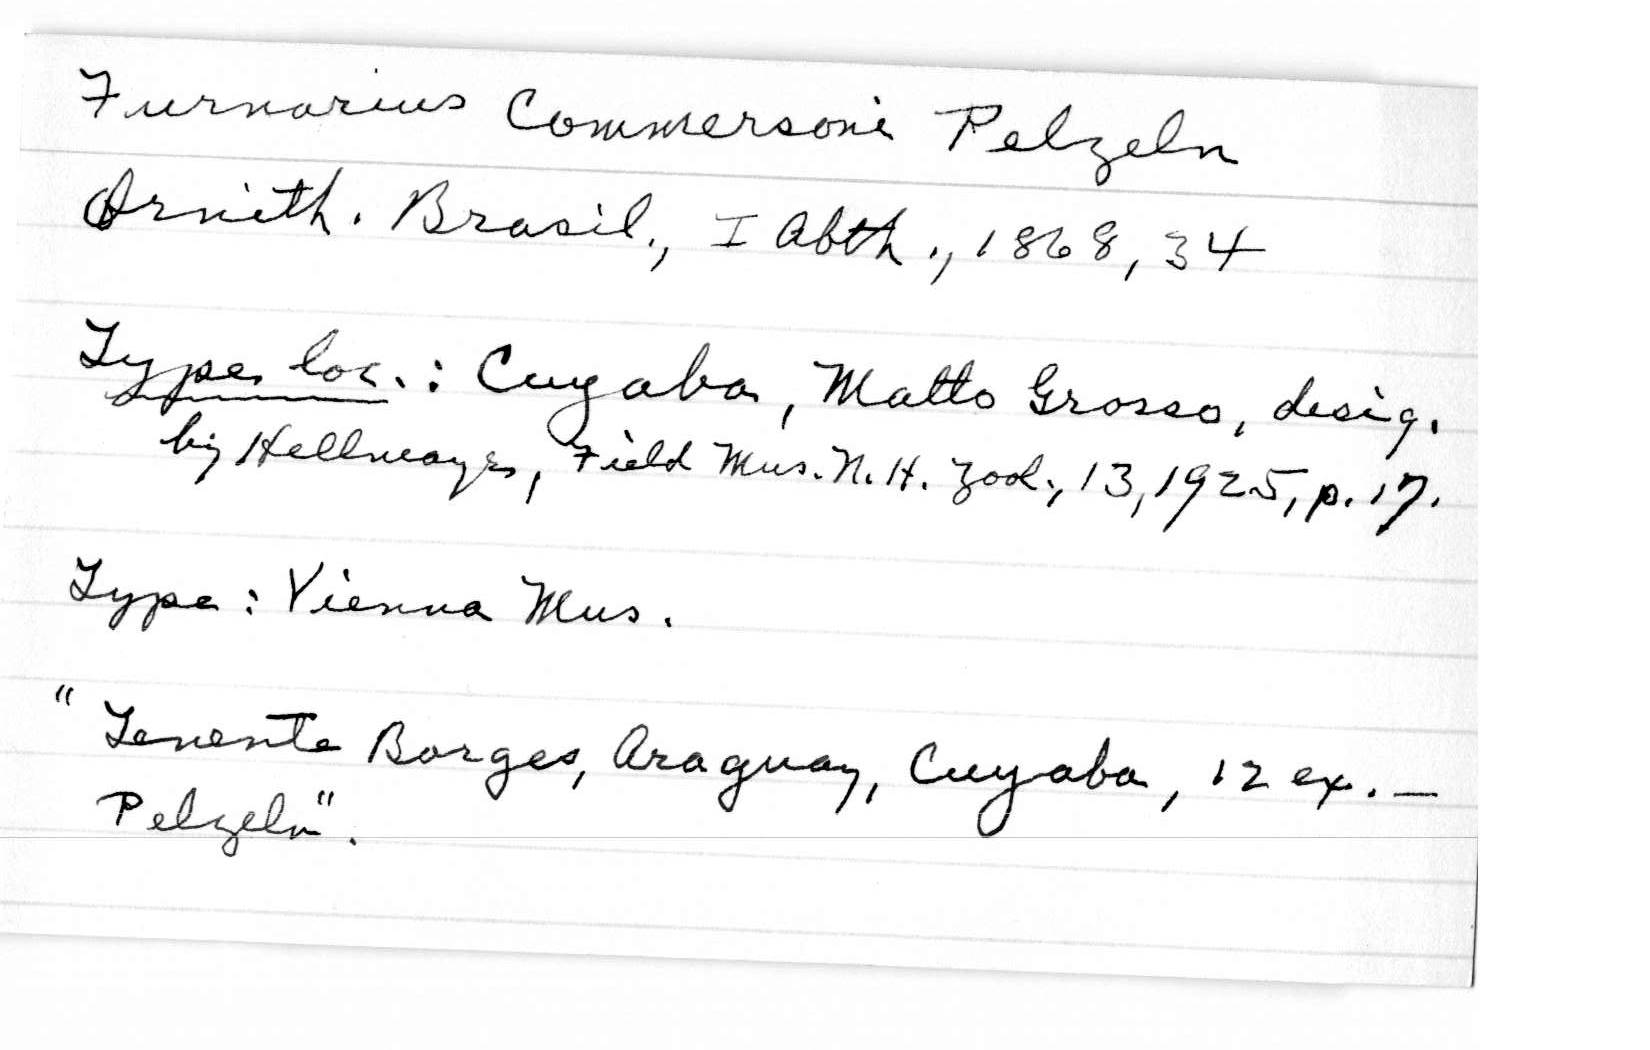 Furnarius Commersoni Pelzeln
Ornith. Brasil., I Abth., 1868, 34
Type loc.: Cuyaba, Matto Grosso, desig.
by Hellmayr, Field Mus. N.H. Zool., 13, 1925, p. 17.
Type: Vienna Mus.
"Tenente Borges, Araguay, Cuyaba, 12 ex. —
Pelzeln".